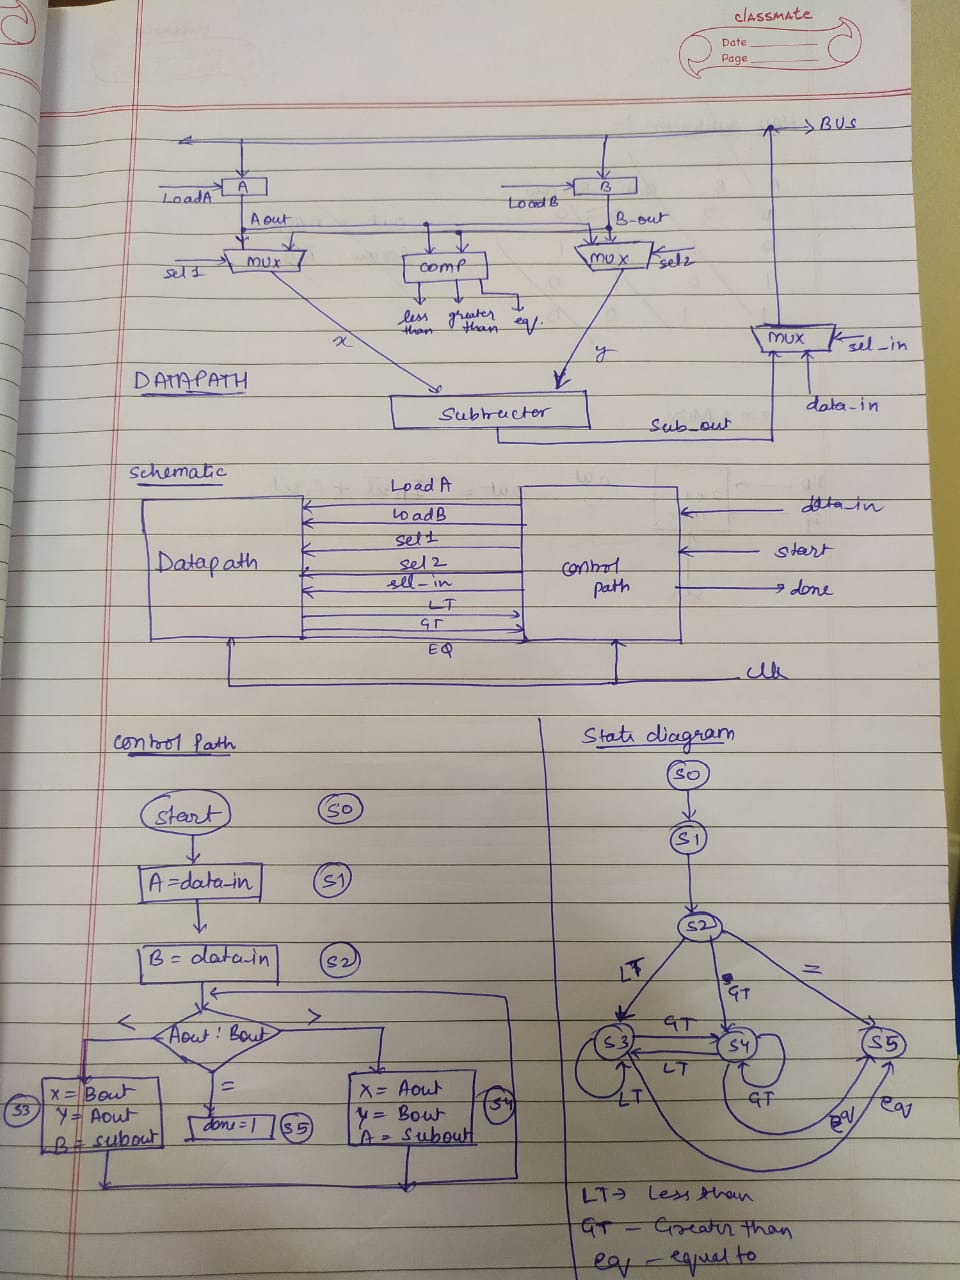 classmate
Date
Page
BUS
A
B
LoadA
LoadB
Aout
B-out
sel1
MUX
COMP
MUX
sel2
less than
greater than
eq.
MUX
sel_in
x
y
DATAPATH
data-in
Subtractor
Sub_out
Schematic
Load A
LoadB
sel1
sel2
sel-in
LT
GT
EQ
Datapath
control path
data-in
start
done
clk
Control Path
State diagram
Start
S0
A=data-in
S1
B = data-in
S2
<
>
Aout : Bout
=
X = Bout
Y = Aout
B = subout
S3
done=1
S5
X = Aout
Y = Bout
A = Subout
S4
S0
S1
S2
LT
GT
=
S3
GT
LT
S4
S5
LT
GT
eq
eq
LT → Less than
GT - Greater than
eq - equal to